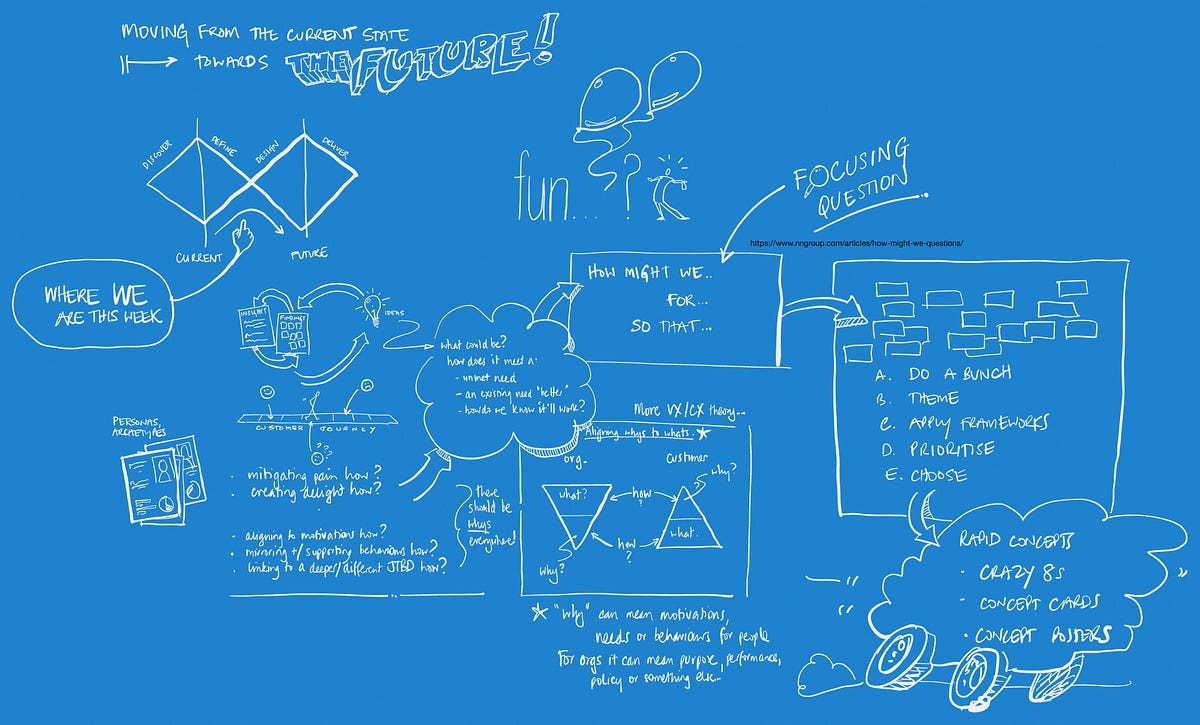 MOVING FROM THE CURRENT STATE
TOWARDS THE FUTURE!
DISCOVER
DEFINE
DESIGN
DELIVER
CURRENT
FUTURE
WHERE WE
ARE THIS WEEK
fun...?
FOCUSING
QUESTION
https://www.nngroup.com/articles/how-might-we-questions/
HOW MIGHT WE..
FOR...
SO THAT...
INSIGHTS
FINDINGS
IDEAS
CUSTOMER JOURNEY
PERSONAS,
ARCHETYPES
· mitigating pain how?
· creating delight how?
- aligning to motivations how?
· mirroring +/ supporting behaviours how?
· linking to a deeper/different JTBD how?
there
should be
whys
everywhere!
what could be?
how does it meet a:
- unmet need
- an existing need "better"
- how do we know it'll work?
More VX/CX theory...
Aligning whys to whats. ★
org.
customer
what?
why?
how
?
how
?
why?
what.
★ "why" can mean motivations,
needs or behaviours for people
For orgs it can mean purpose, performance,
policy or something else...
A. DO A BUNCH
B. THEME
C. APPLY FRAMEWORKS
D. PRIORITISE
E. CHOOSE
RAPID CONCEPTS
· CRAZY 8s
- CONCEPT CARDS
· CONCEPT POSTERS